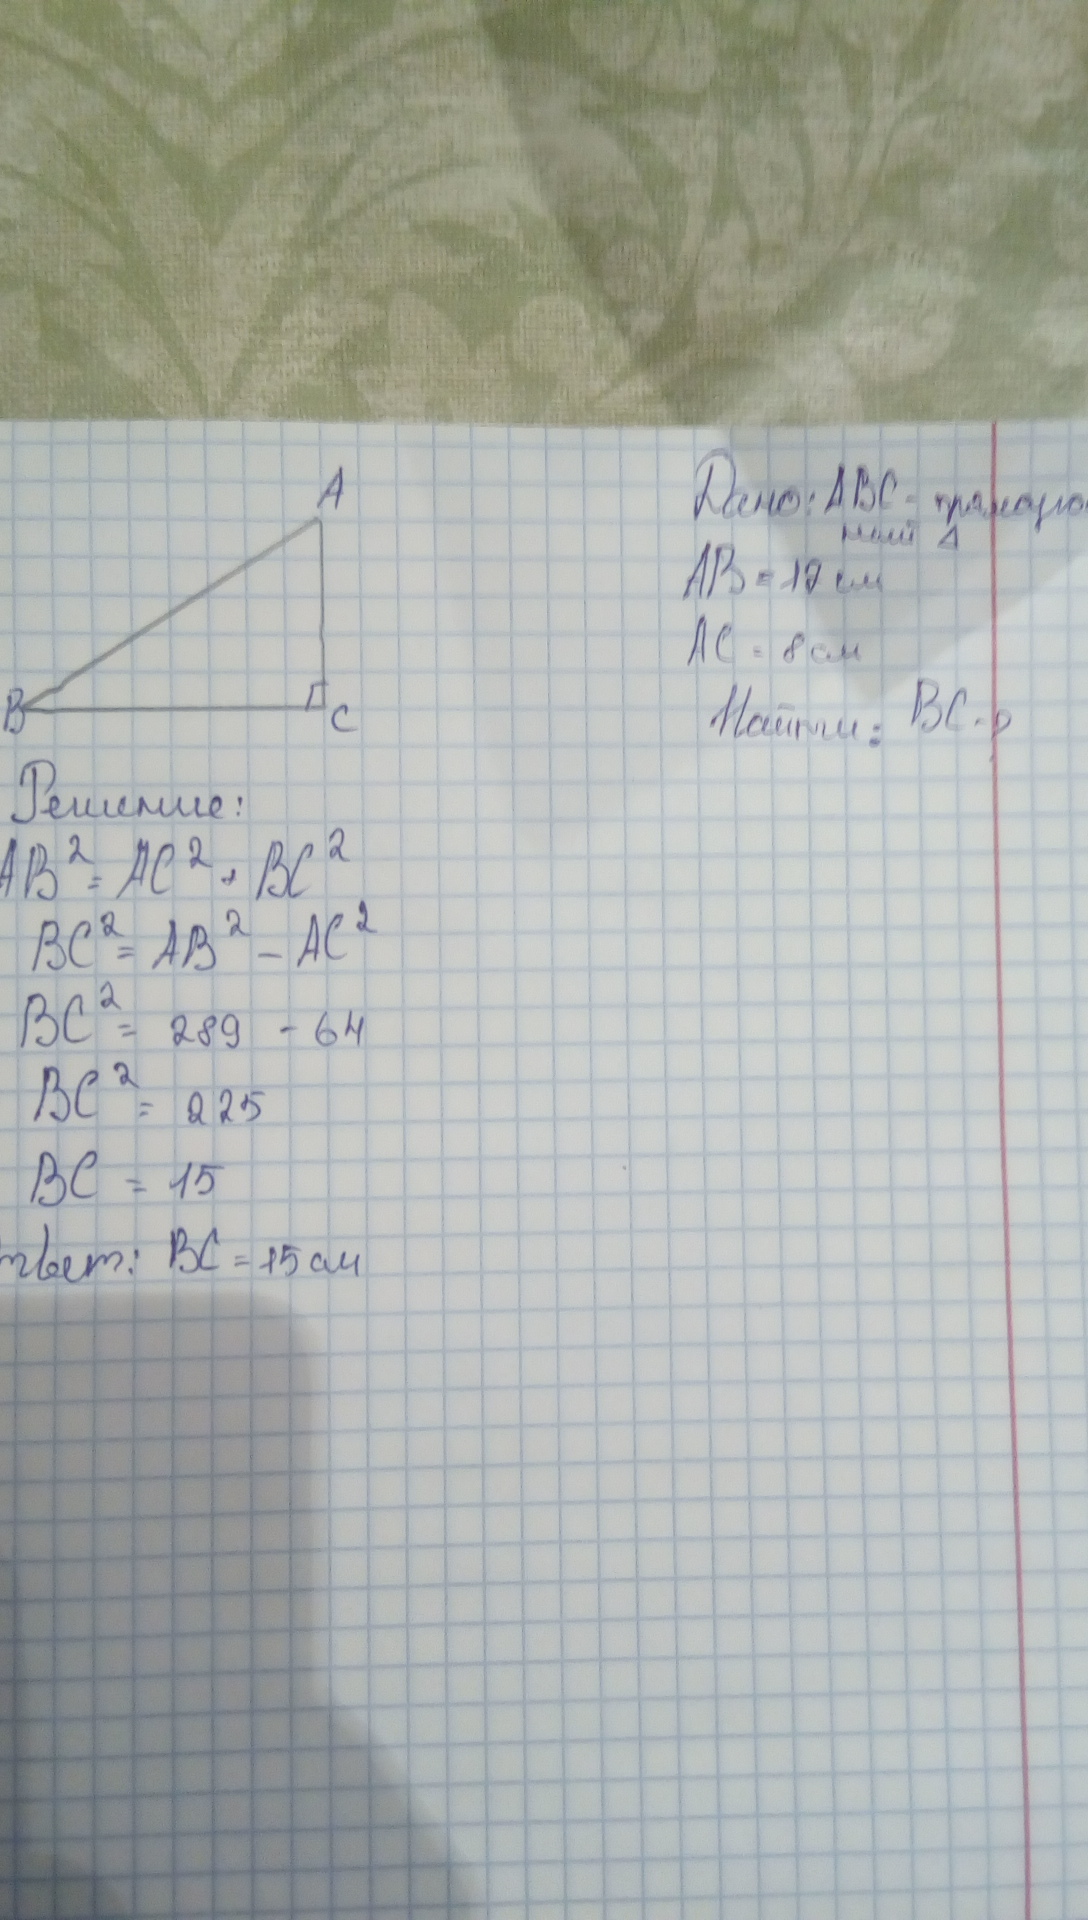 A
B
C
Дано: ABC - прямоуго
ный Δ
AB = 17 см
AC = 8 см
Найти: BC - ?
Решение:
AB² = AC² + BC²
BC² = AB² - AC²
BC² = 289 - 64
BC² = 225
BC = 15
твет: BC = 15 см